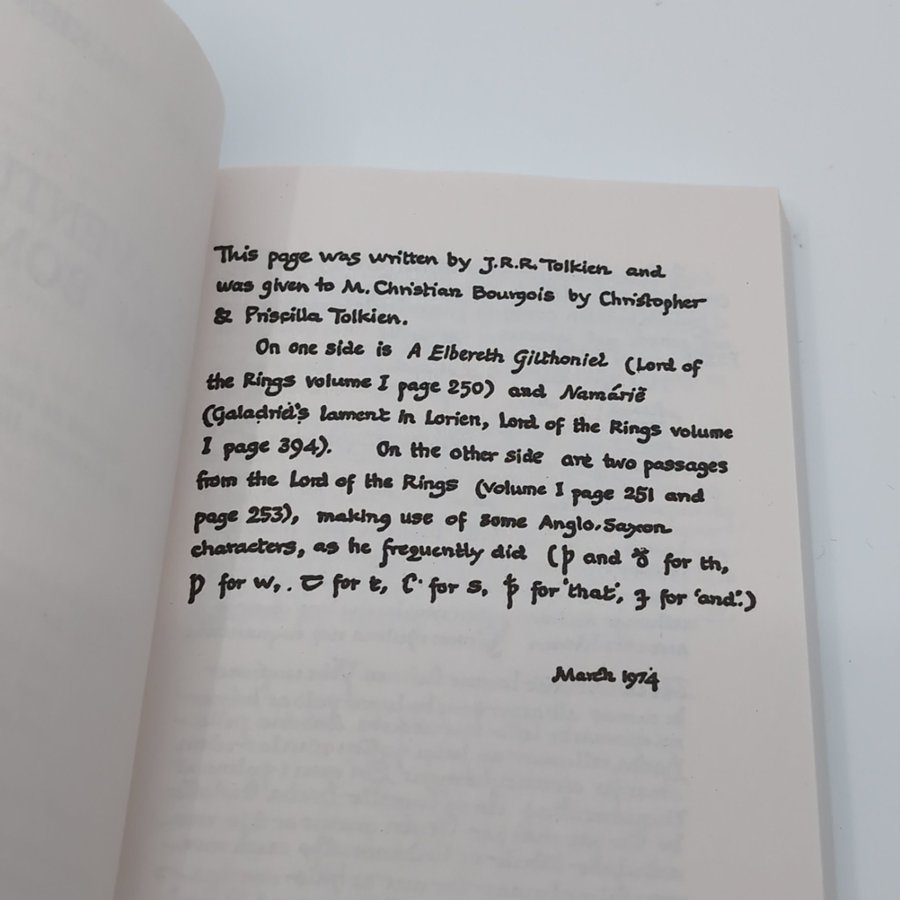 This page was written by J.R.R. Tolkien and
was given to M. Christian Bourgois by Christopher
& Priscilla Tolkien.
On one side is A Elbereth Gilthoniel (Lord of
the Rings volume I page 250) and Namárië
(Galadriel's lament in Lorien, Lord of the Rings volume
I page 394). On the other side are two passages
from the Lord of the Rings (volume I page 251 and
page 253), making use of some Anglo-Saxon
characters, as he frequently did (þ and ð for th,
ƿ for w, ꞇ for t, ſ for s, ꝥ for 'that', ⁊ for 'and'.)
March 1974